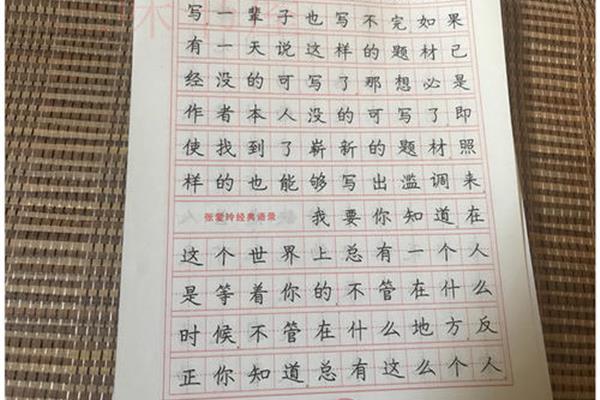 写一辈子也写不完如果
有一天说这样的题材已
经没的可写了那想必是
作者本人没的可写了即
使找到了崭新的题材照
样的也能够写出滥调来
张爱玲经典语录 我要你知道在
这个世界上总有一个人
是等着你的不管在什么
时候不管在什么地方反
正你知道总有这么个人